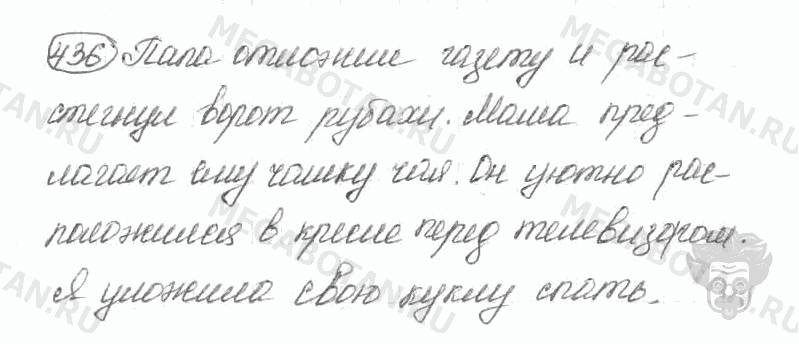 436 Папа отложил газету и рас-
стегнул ворот рубахи. Мама пред-
лагает ему чашку чая. Он уютно рас-
положился в кресле перед телевизором.
Я уложила свою куклу спать.
MEGABOTAN.RU